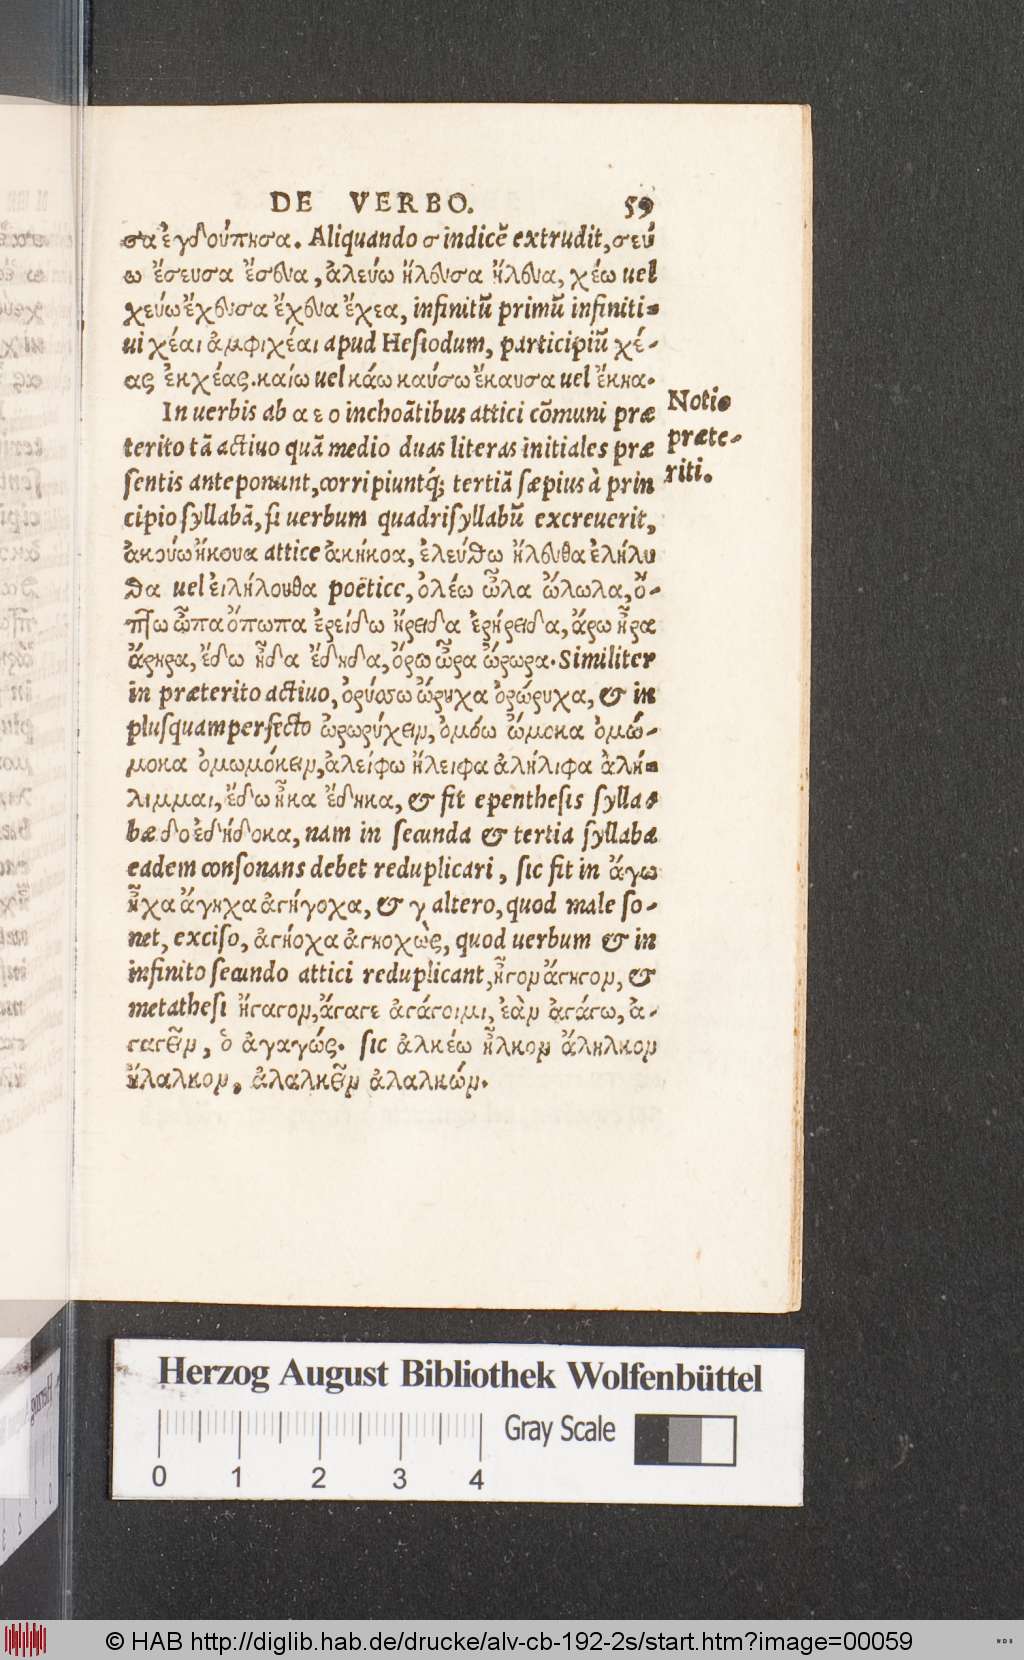 DE VERBO. 59
σα ἐγδούπησα. Aliquando σ indicẽ extrudit, σεύ
ω ἔσευσα ἔσευα, ἀλεύω ἤλευσα ἤλευα, χέω uel
χεύω ἔχευσα ἔχευα ἔχεα, infinitũ primũ infiniti-
ui χέαι ἀμφιχέαι apud Hesiodum, participiũ χέ-
ας ἐκχέας. καίω uel κάω καύσω ἔκαυσα uel ἔκηα.
In uerbis ab α ε ο inchoãtibus attici cõmuni præ
terito tã actiuo quã medio duas literas initiales præ
sentis anteponunt, corripiuntq́; tertiã sæpius à prin
cipio syllabã, si uerbum quadrisyllabũ excreuerit,
ἀκούω ἤκουα attice ἀκήκοα, ἐλεύθω ἤλευθα ἐλήλυ
θα uel εἰλήλουθα poëtice, ὀλέω ὦλα ὤλωλα, ὄ-
πτω ὦπα ὄπωπα ἐρείδω ἤρειδα ἐρήρειδα, ἄρω ἦρα
ἄρηρα, ἔδω ἦδα ἔδηδα, ὄρω ὦρα ὤρωρα. Similiter
in præterito actiuo, ὀρύσσω ὤρυχα ὀρώρυχα, & in
plusquamperfecto ὠρωρύχειν, ὀμόω ὤμοκα ὀμώ-
μοκα ὀμωμόκειν, ἀλείφω ἤλειφα ἀλήλιφα ἀλή-
λιμμαι, ἔδω ἦκα ἔδηκα, & fit epenthesis sylla-
bæ δο ἐδήδοκα, nam in secunda & tertia syllaba
eadem consonans debet reduplicari, sic fit in ἄγω
ἦχα ἄγηχα ἀγήγοχα, & γ altero, quod male so-
net, exciso, ἀγήοχα ἀγηοχὼς, quod uerbum & in
infinito secundo attici reduplicant, ἦγον ἄγηγον, &
metathesi ἤγαγον, ἄγαγε ἀγάγοιμι, ἐὰν ἀγάγω, ἀ-
γαγεῖν, ὁ ἀγαγώς. sic ἀλκέω ἦλκον ἄληλκον
ἤλαλκον, ἀλαλκεῖν ἀλαλκών.
Notio
præte-
riti.
Herzog August Bibliothek Wolfenbüttel
Gray Scale
0 1 2 3 4
© HAB http://diglib.hab.de/drucke/alv-cb-192-2s/start.htm?image=00059